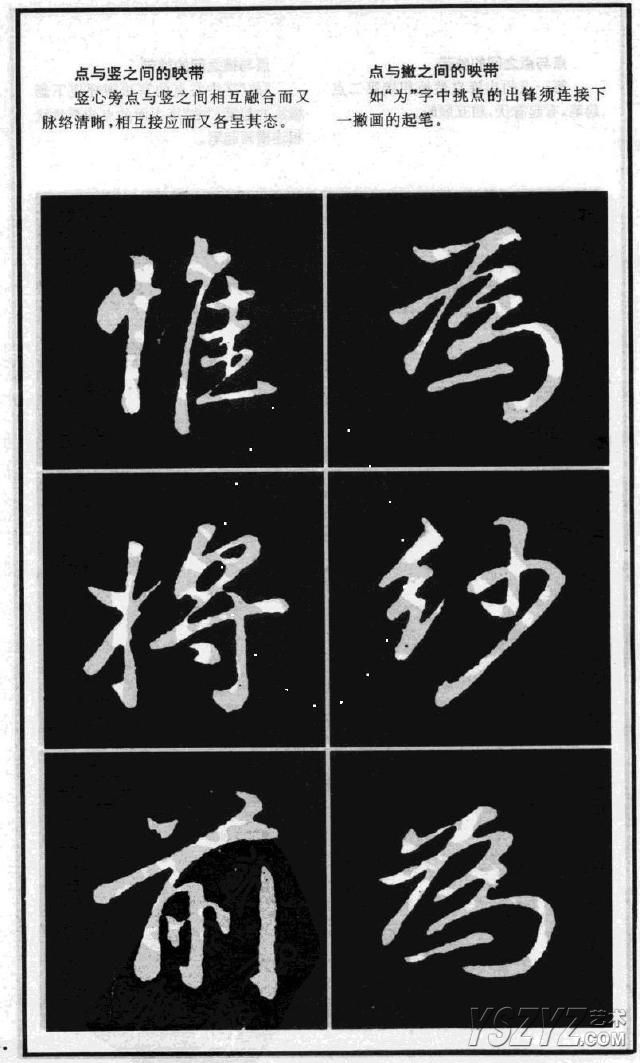 点与竖之间的映带
竖心旁点与竖之间相互融合而又
脉络清晰,相互接应而又各呈其态。
点与撇之间的映带
如“为”字中挑点的出锋须连接下
一撇画的起笔。
惟
為
將
紗
前
為
YSZYZ艺术
.COM